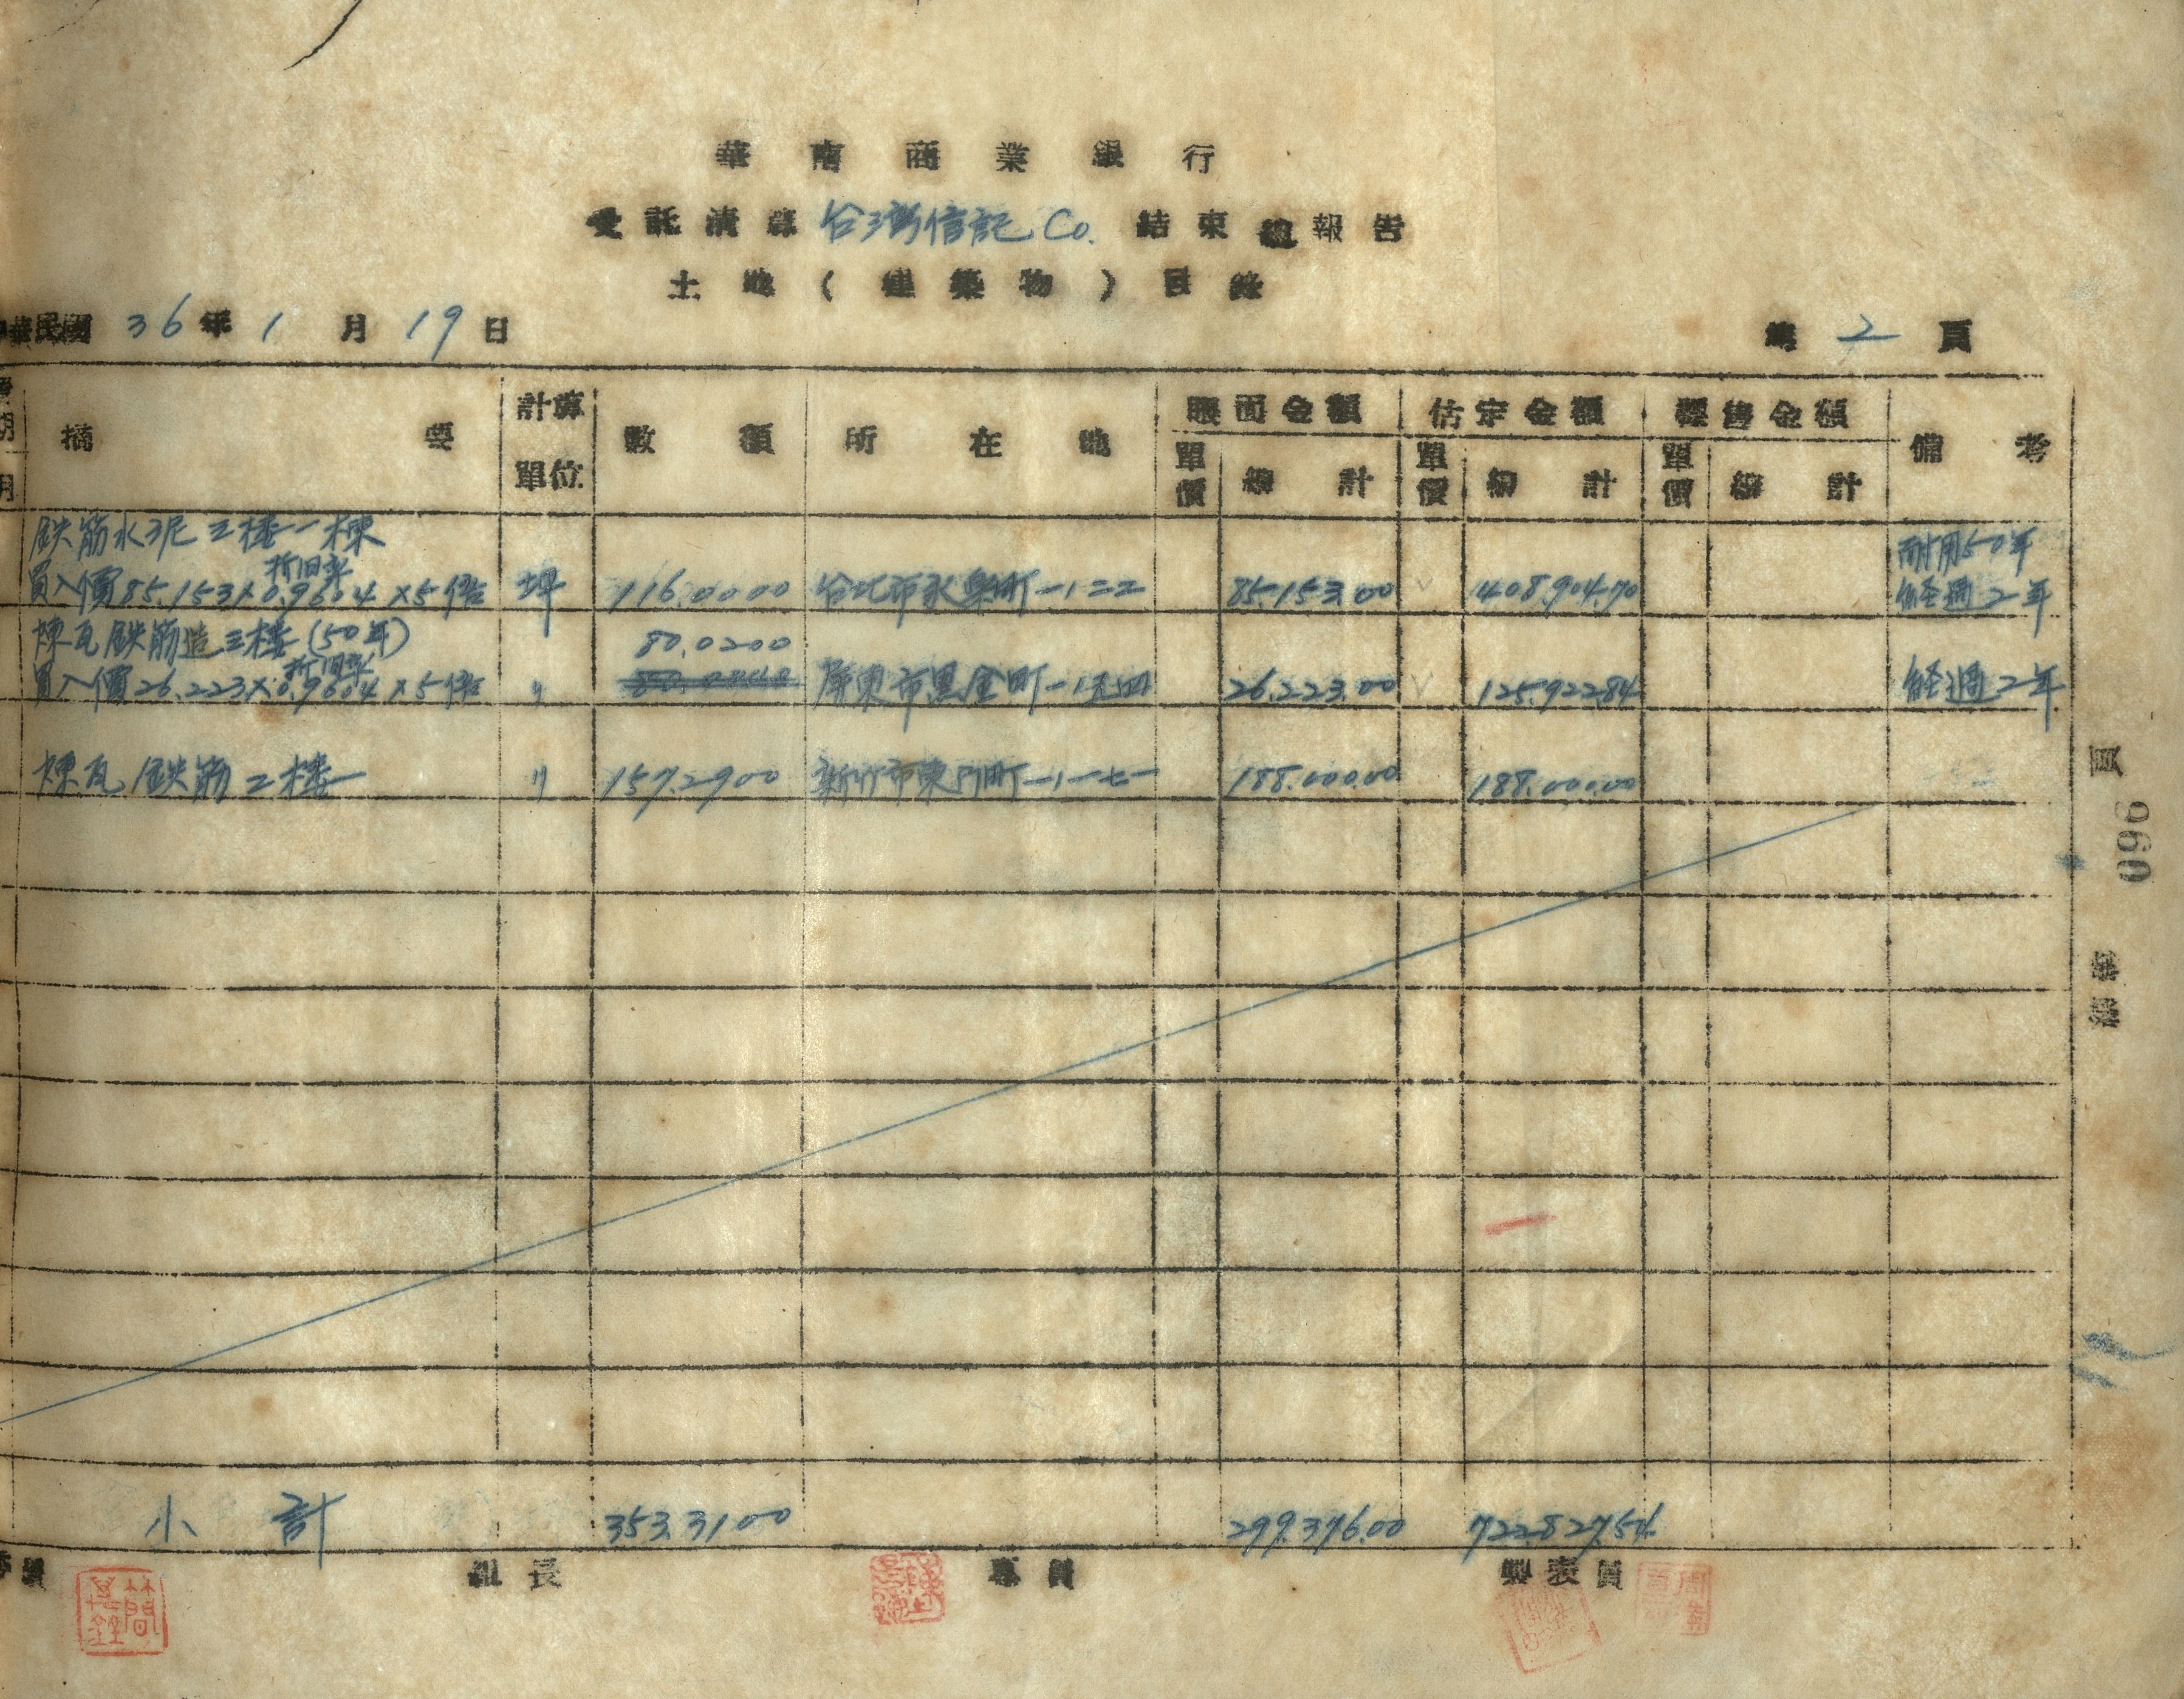 華南商業銀行
受託清算台湾信託Co.結束總報告
土地(建築物)目錄
中華民國36年1月19日
第2頁
摘要 計算單位 數額 所在地 賬面金額 估定金額 標售金額 備考
單價 總計 單價 總計 單價 總計
鉄筋水泥三楼一棟 耐用50年
折旧率
買入價85.153×0.9604×5倍 坪 116.0000 台北市永樂町一ノ二二 85.153.00 408.904.70 経過2年
煉瓦鉄筋造三楼(50年) 80.0200
折旧率
買入價26.223×0.9604×5倍 〃 屏東市黒金町一ノ五四 26.223.00 125.922.84 経過2年
煉瓦鉄筋二楼 〃 157.2900 新竹市東門町一ノ一七一 188.000.00 188.000.00
小計 353.3100 299.376.00 722.827.54
組長 專員 製表員
簡
頁 096
總號